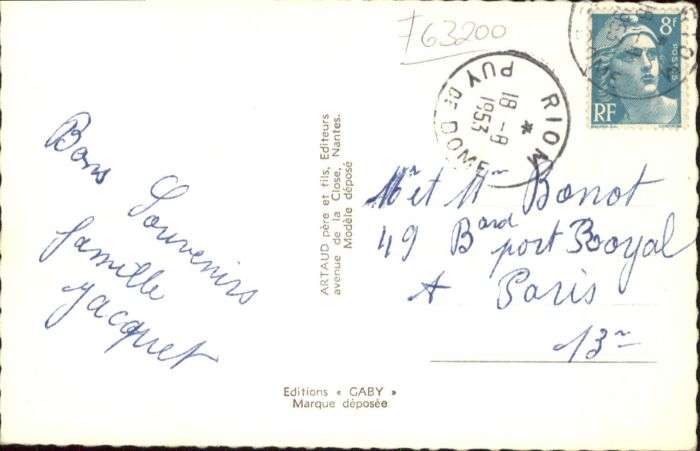 763200
8F
POSTES
RF
RIOM
*
18-8
1953
PUY DE DOME
Bons
Souvenirs
famille
Jacquet
ARTAUD père et fils, Editeurs
avenue de la Close, Nantes.
Modèle déposé
Mr et Mme Bonot
49 Bard port Rooyal
A Paris
13e
Editions « GABY »
Marque déposée